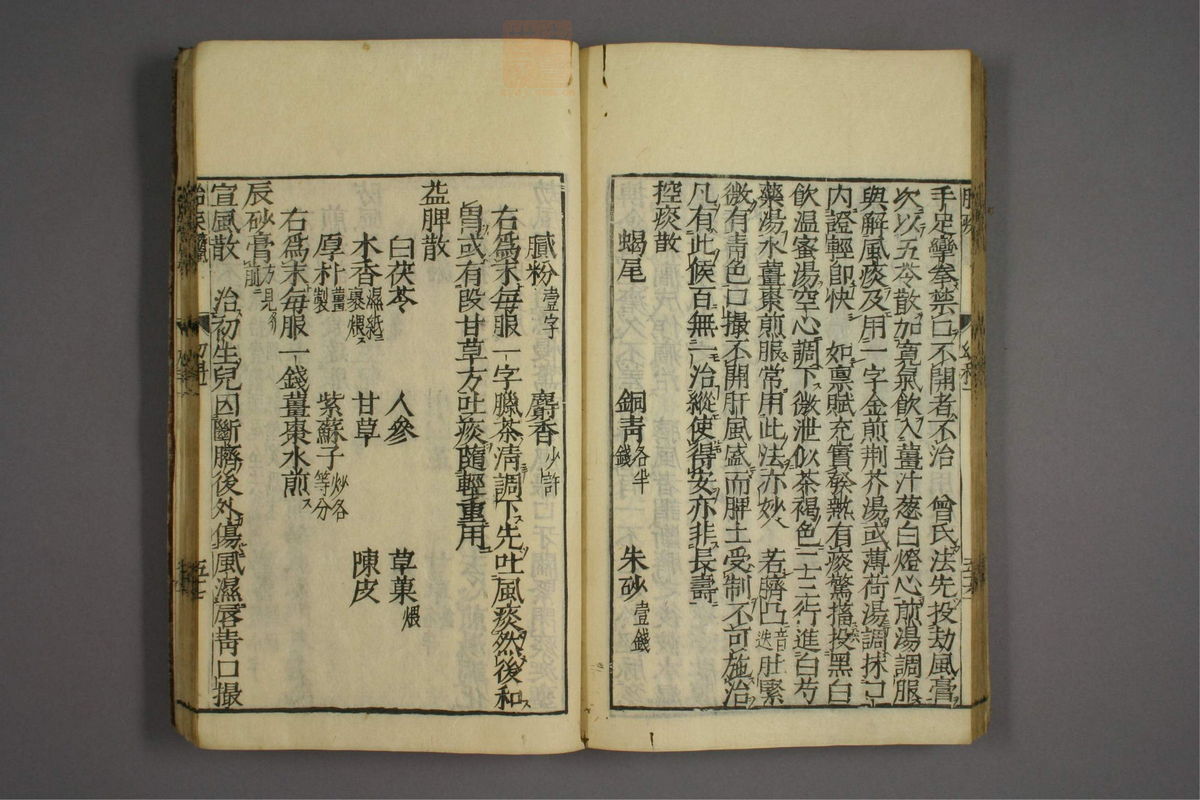 手足攣拳禁口不開者不治 曾氏法先投劫風膏
次以五苓散加寬氣飲入薑汁葱白燈心煎湯調服
與解風痰及用一字金煎荆芥湯或薄荷湯調抹口
內證輕卽快 如稟賦充實發熱有痰驚搐投黑白
飲溫蜜湯空心調下微泄似茶褐色二三行進白芍
藥湯水薑棗煎服常用此法亦妙 若臍凸音迭肚緊
微有靑色口撮不開肝風盛而脾土受制不可施治
凡有此候百無一治縱使得安亦非長壽
控痰散
蝎尾 銅靑各半錢 朱砂壹錢
膩粉壹字 麝香少許
右爲末每服一字臘茶淸調下先吐風痰然後和
胃或有段甘草方吐痰隨輕重用
益脾散
白茯苓 人參 草菓煨
木香濕紙裹煨 甘草 陳皮
厚朴薑製 紫蘇子炒各等分
右爲末每服一錢薑棗水煎
辰砂膏方見
宣風散 治初生兒因斷臍後外傷風濕唇靑口撮